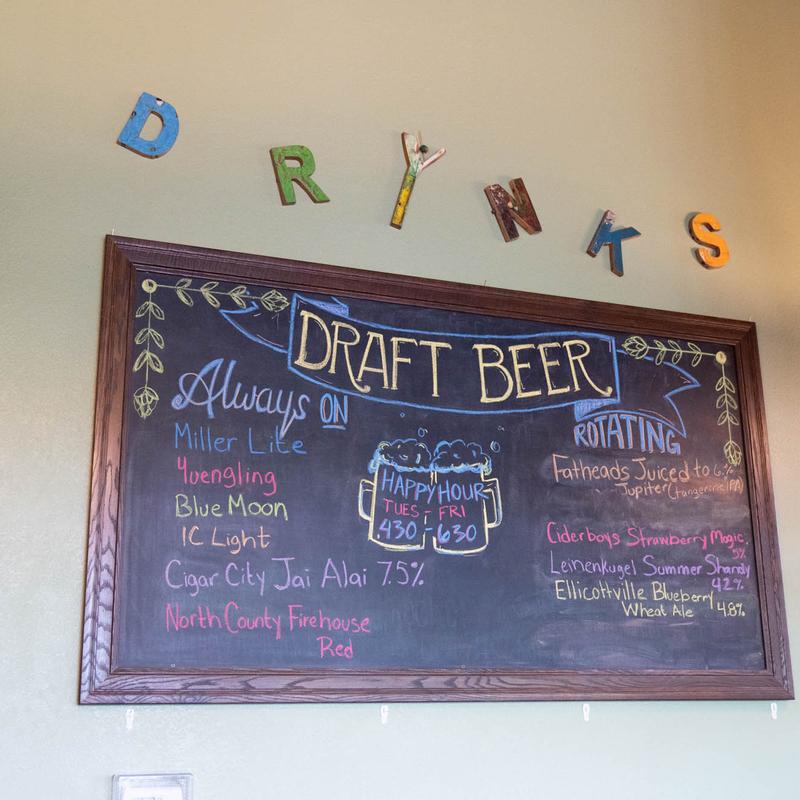 DRYNKS
DRAFT BEER
Always ON
Miller Lite
Yuengling
Blue Moon
IC Light
Cigar City Jai Alai 7.5%
North County Firehouse
Red
HAPPY HOUR
TUES - FRI
430 - 630
ROTATING
Fatheads Juiced to 6%
Jupiter (tangerine IPA)
Ciderboys Strawberry Magic
5%
Leinenkugel Summer Shandy
4.2%
Ellicottville Blueberry
Wheat Ale 4.8%